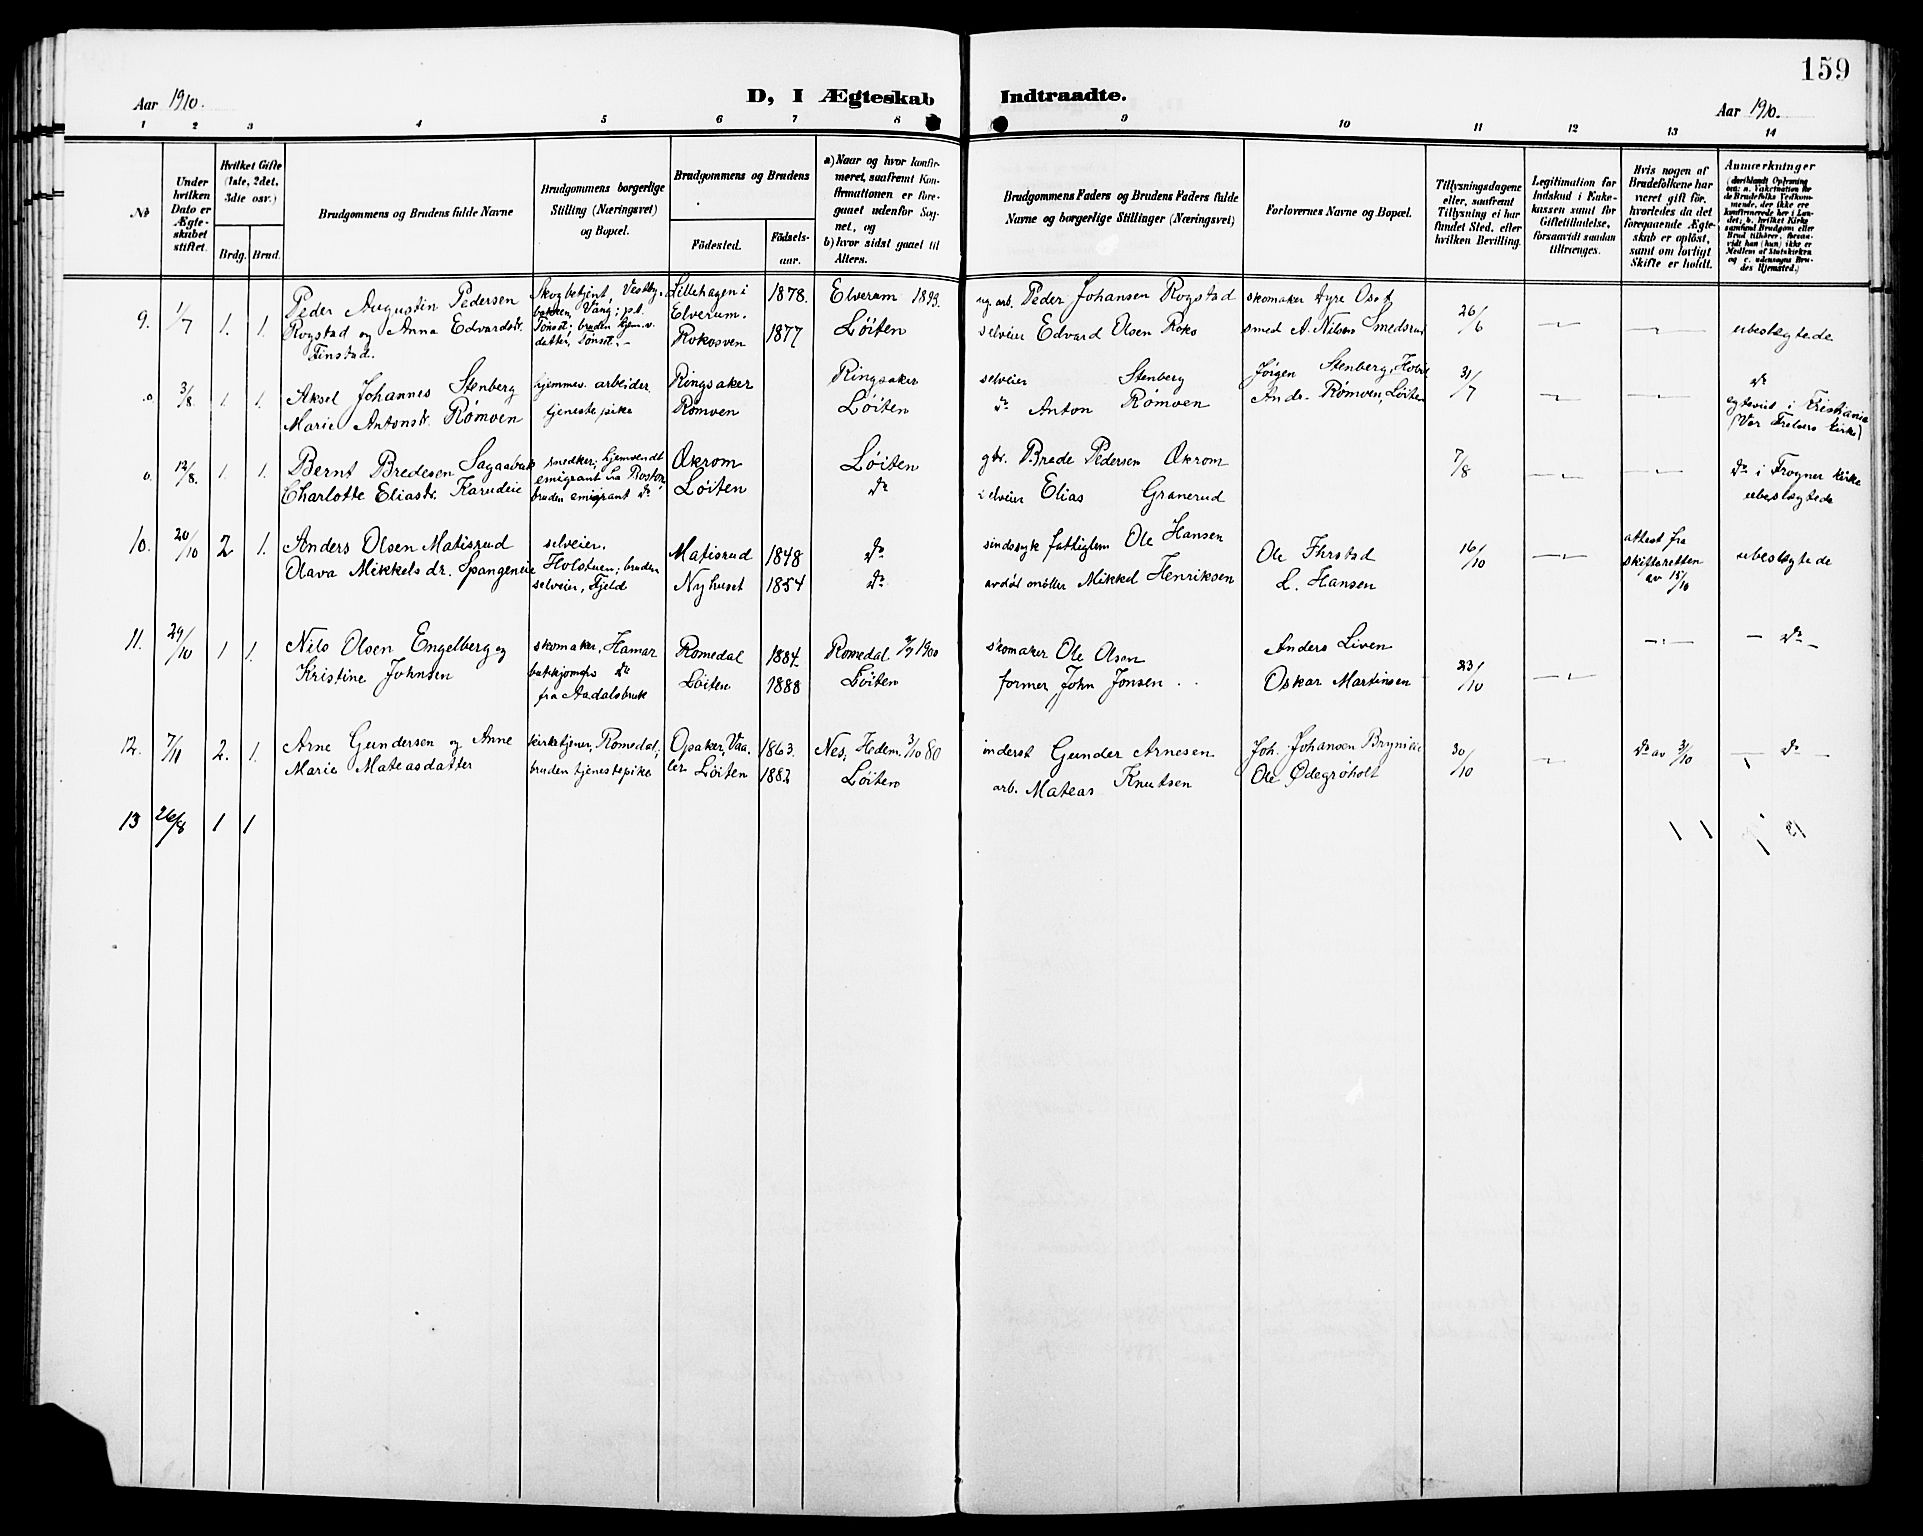 159
Aar 1910.
D, I Ægteskab Indtraadte.
Aar 1910.
1 2 3 4 5 6 7 8 9 10 11 12 13 14
№
Under hvilken Dato er Ægteskabet stiftet.
Hvilket Gifte (1ste, 2det, 3die osv.)
Brdg. Brud.
Brudgommens og Brudens fulde Navne
Brudgommens borgerlige Stilling (Næringsvei) og Bopæl.
Brudgommens og Brudens
Födested. Födselsaar.
a) Naar og hvor konfirmeret, saafremt Konfirmationen er foregaaet udenfor Sognet, og
b) hvor sidst gaaet til Alters.
Brudgommens Faders og Brudens Faders fulde Navne og borgerlige Stillinger (Næringsvei)
Forlovernes Navne og Bopæl.
Tillysningsdagene eller, saafremt Tillysning ei har fundet Sted, efter hvilken Bevilling.
Legitimation for Indskud i Enkekassen samt for Giftetilladelse, forsaavidt saadan tiltrænges.
Hvis nogen af Brudefolkene har været gift för, hvorledes da det foregaaende Ægteskab er oplöst, samt om lovligt Skifte er holdt.
Anmærkninger
9. 1/7 1. 1. Peder Augustin Pedersen Rogstad og Anna Edvardsdr. Finstad.
Skogbetjent, Vestby-bakken, Vang; p.t. Tönset; bruden hjemv. datter, Tönset. –
Lillehagen i Elverum. 1878. Elverum 1893.
Rokosven 1877 Löiten
ug. arb. Peder Johansen Rogstad
selveier Edvard Olsen Roko
skomaker Ayre Oset
smed A. Nilsen Smedsrud
26/6 — — ubeslegtede
o 3/8. 1. 1. Aksel Johannes Stenberg
Marie Antonsdr. Römoen
hjemmev. arbeider
tjenestepike
Ringsaker Ringsaker
Römoen Löiten
selveier Stenberg
do Anton Römoen
Jörgen Stenberg,
And. Römoen, Löiten
31/7 — — do
egteviet i Kristiania
(Vor Frelsers kirke)
o. 12/8. 1. 1. Bernt Bredesen Sagaabak
Charlotte Eliasdr. Karudeie
snedker; hjemvendt emigrant fra Boston, bruden emigrant do
Økrom Löiten
Löiten do
gbr. Brede Pedersen Økrom
selveier Elias Granerud
7/8 — — do i Frogner kirke
ubeslegtede
10. 20/10 2 1. Anders Olsen Matisrud
Olava Mikkelsdr. Spangeneie
selveier.
Holstuen; bruden
selveier, Fjeld
Matisrud 1848 do
Nyhuset 1854 do
sindssyk fattiglem Ole Hansen
avdöd möller Mikkel Henriksen
Ole Ihrstad
L. Hansen
16/10 — attest fra skifteretten av 15/10 ubeslegtede
11. 29/10 1 1. Nils Olsen Engelberg og
Kristine Johnsen
skomaker, Hamar
do
fra Aadalsbruk
Romedal 1884. Romedal 1900
Löiten 1888 Löiten
skomaker Ole Olsen
former John Jonsen
Anders Liven
Oskar Martinsen
23/10 — — – do –
12. 7/11 2. 1. Arne Gundersen og Anne
Marie Mateasdatter
kirketjener, Romedal;
bruden tjenestepike
Opaker, Vaaler 1863. Nes, Hedem. 3/10 80
Löiten 1882 Löiten
inderst Gunder Arnesen
arb. Mateas Knutsen
Joh. Johansen Bryni
Ole Ödegröholt
30/10 — do av 3/10 – do –
13 26/8 1 1